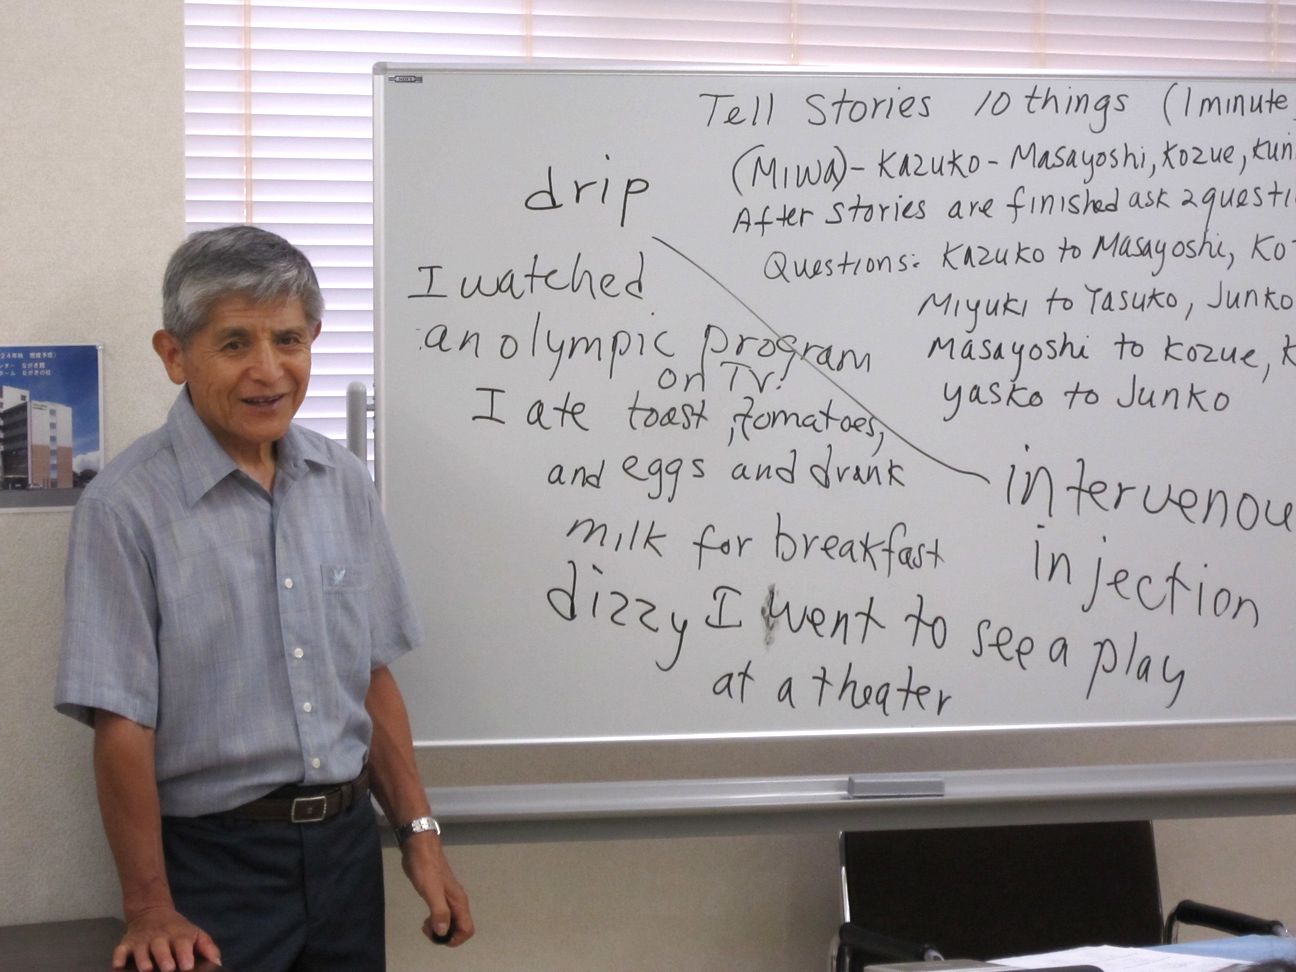 Tell Stories 10 things (1 minute
(Miwa) - Kazuko - Masayoshi, Kozue,
After stories are finished ask 2
Questions: Kazuko to Masayoshi,
Miyuki to Yasuko, Junko
Masayoshi to Kozue,
yasko to Junko
drip
I watched
an olympic program
on TV.
I ate toast, tomatoes,
and eggs and drank
milk for breakfast
dizzy I went to see a play
at a theater
injection